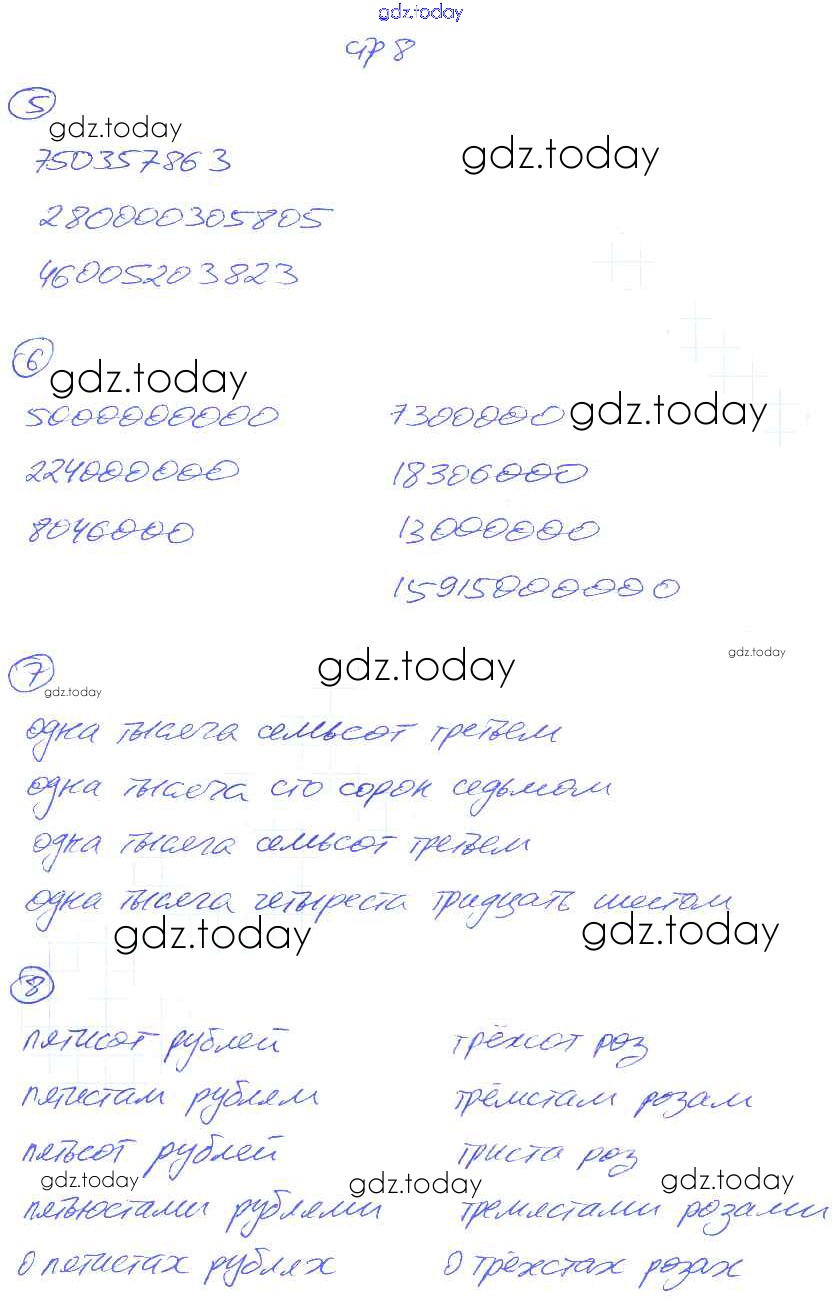 gdz.today
стр 8
5
gdz.today
750357863
gdz.today
2800000305805
46005203823
6
gdz.today
5000000000
7300000
gdz.today
224000000
18306000
8046000
13000000
15915000000
7
gdz.today
gdz.today
gdz.today
одна тысяча семьсот третьем
одна тысяча сто сорок седьмом
одна тысяча семьсот третьем
одна тысяча четыреста тридцать шестом
gdz.today
gdz.today
8
пятисот рублей
трёхсот роз
пятистам рублям
трёмстам розам
пятьсот рублей
триста роз
gdz.today
gdz.today
gdz.today
пятьюстами рублями
тремястами розами
О пятистах рублях
О трёхстах розах